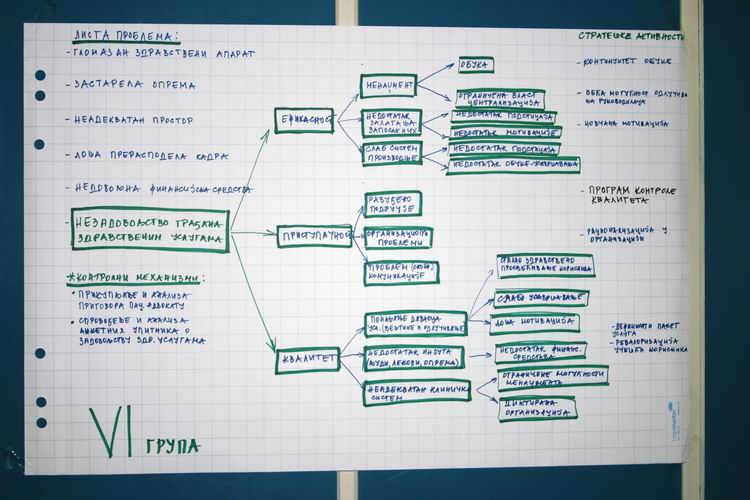 ЛИСТА ПРОБЛЕМА:
- ГЛОМАЗАН ЗДРАВСТВЕНИ АПАРАТ
- ЗАСТАРЕЛА ОПРЕМА
- НЕАДЕКВАТАН ПРОСТОР
- ЛОША ПРЕРАСПОДЕЛА КАДРА
- НЕДОВОЉНА ФИНАНСИЈСКА СРЕДСТВА
- НЕЗАДОВОЉСТВО ГРАЂАНА
ЗДРАВСТВЕНИМ УСЛУГАМА
*КОНТРОЛНИ МЕХАНИЗМИ:
• ПРИКУПЉАЊЕ И АНАЛИЗА
ПРИГОВОРА ПАЦ. АДВОКАТУ
• СПРОВОЂЕЊЕ И АНАЛИЗА
АНКЕТНИХ УПИТНИКА О
ЗАДОВОЉСТВУ ЗДР. УСЛУГАМА
VI ГРУПА
ЕФИКАСНОСТ
МЕНАЏМЕНТ
ОБУКА
ОГРАНИЧЕНА ВЛАСТ
ЦЕНТРАЛИЗАЦИЈА
НЕДОСТАТАК
ЗАЛАГАЊА
ЗАПОСЛЕНИХ
НЕДОСТАТАК ПОДСТИЦАЈА
НЕДОСТАТАК МОТИВАЦИЈЕ
СЛАБ СИСТЕМ
ПРОИЗВОДЊЕ
НЕДОСТАТАК ПОДСТИЦАЈА
НЕДОСТАТАК ОБУКЕ-УСАВРШАВАЊА
ПРИСТУПАЧНОСТ
РАЗУЂЕНО
ПОДРУЧЈЕ
ОРГАНИЗАЦИОНИ
ПРОБЛЕМИ
ПРОБЛЕМ
КОМУНИКАЦИЈЕ
КВАЛИТЕТ
ПОНАШАЊЕ ДАВАОЦА
УСЛ. (ВЕШТИНЕ И ОДЛУЧИВАЊЕ)
СЛАБО УСАВРШАВАЊЕ
ЛОША МОТИВАЦИЈА
НЕДОСТАТАК ИНПУТА
(ЉУДИ, ЛЕКОВИ, ОПРЕМА)
НЕДОСТАТАК ФИНАНС.
СРЕДСТАВА
НЕАДЕКВАТАН КЛИНИЧКИ
СИСТЕМ
ОГРАНИЧЕНЕ МОГУЋНОСТИ
МЕНАЏМЕНТА
ДИКТИРАНА
ОРГАНИЗАЦИЈА
СТРАТЕШКЕ АКТИВНОСТИ
- КОНТИНУИТЕТ ОБУКЕ
- ВЕЋА МОГУЋНОСТ ОДЛУЧИВА
ЊА РУКОВОДИЛАЦА
- НОВЧАНА МОТИВАЦИЈА
- ПРОГРАМ КОНТРОЛЕ
КВАЛИТЕТА
- РАЦИОНАЛИЗАЦИЈА У
ОРГАНИЗАЦИЈИ
- ДЕФИНИСАТИ ПАКЕТ
УСЛУГА
- РЕВАЛОРИЗАЦИЈА
УЧЕШЋА КОРИСНИКА
Legamaster